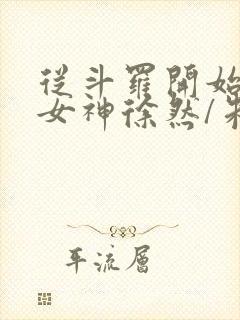 從斗羅開始
女神徐然/朱
平流層